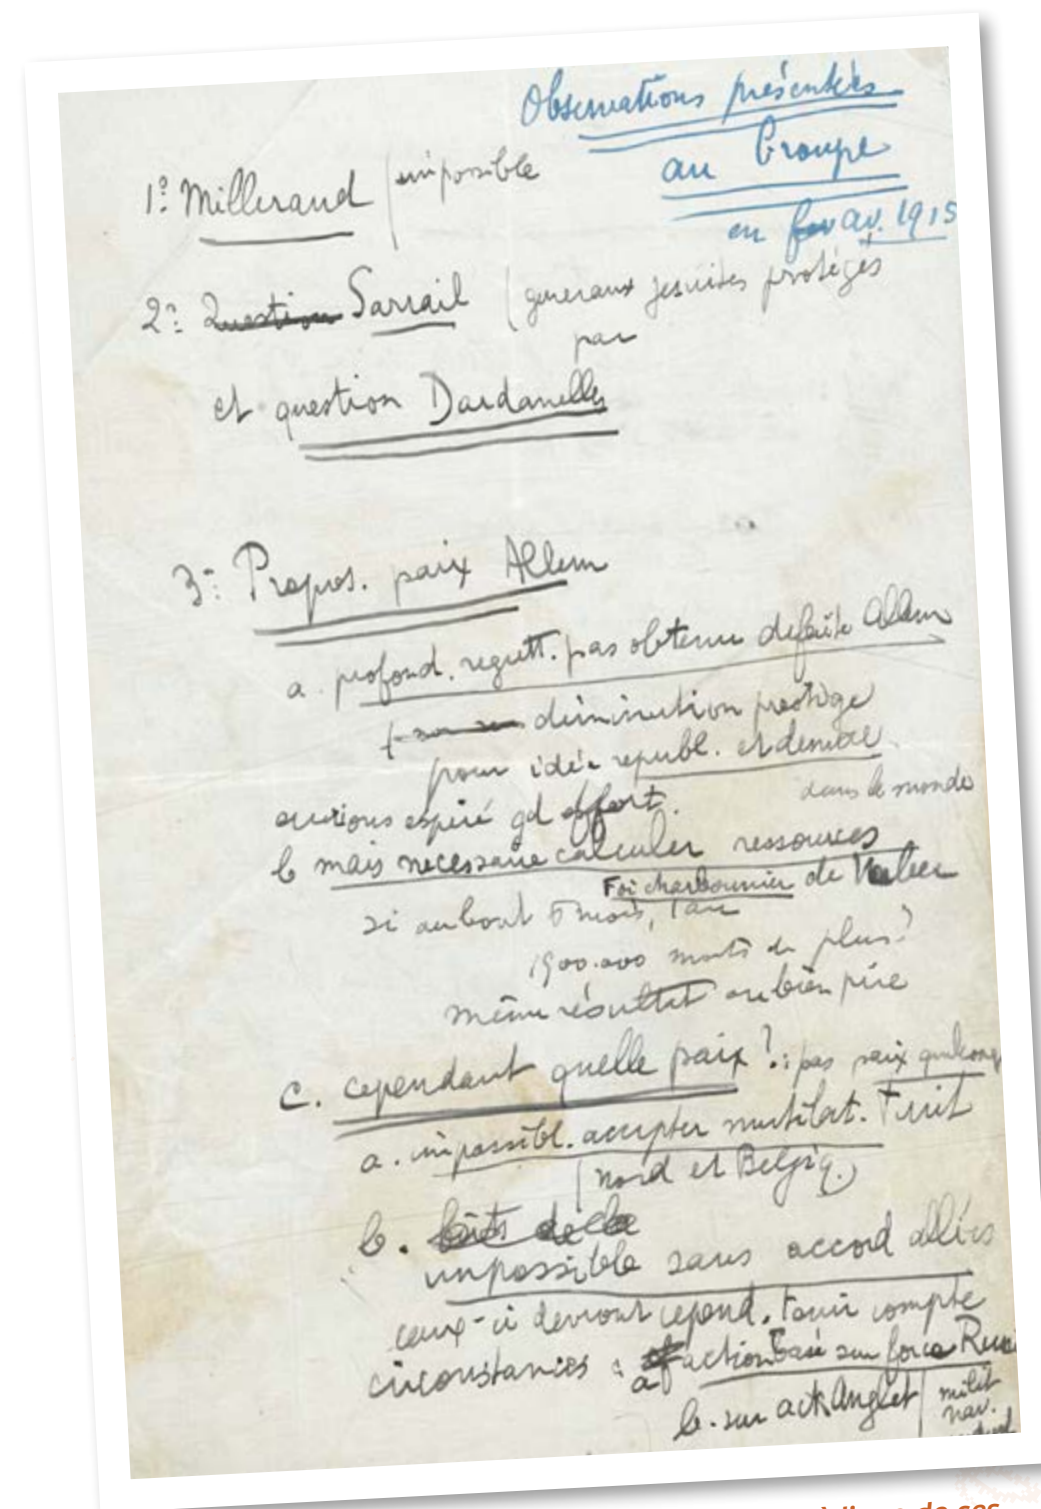 Observations présentées
au Groupe
en av. 1915
1º Millerand / impossible
2º Question Sarrail (generaux jesuites protégés
par
et question Dardanelles
3º Propos. paix Allem
a. profond. regrett. pas obtenu defaite Allem
diminution prestige
pour idée republ. et democ
dans le monde
aurions espéré gd effort.
b mais necessaire calculer ressources
Foi charbonnier de
si au bout 6 mois, 1 an
1900.000 morts de plus?
même résultat ou bien pire
C. cependant quelle paix? : pas paix quelconq
a. impossibl. accepter mutilat. Territ
(Nord et Belgiq.)
b. buts de la
impossible sans accord alliés
ceux-ci devront cepend. tenir compte
circonstances : a action basée sur force Russ
b. sur act. Anglet / milit
nav.
de ses